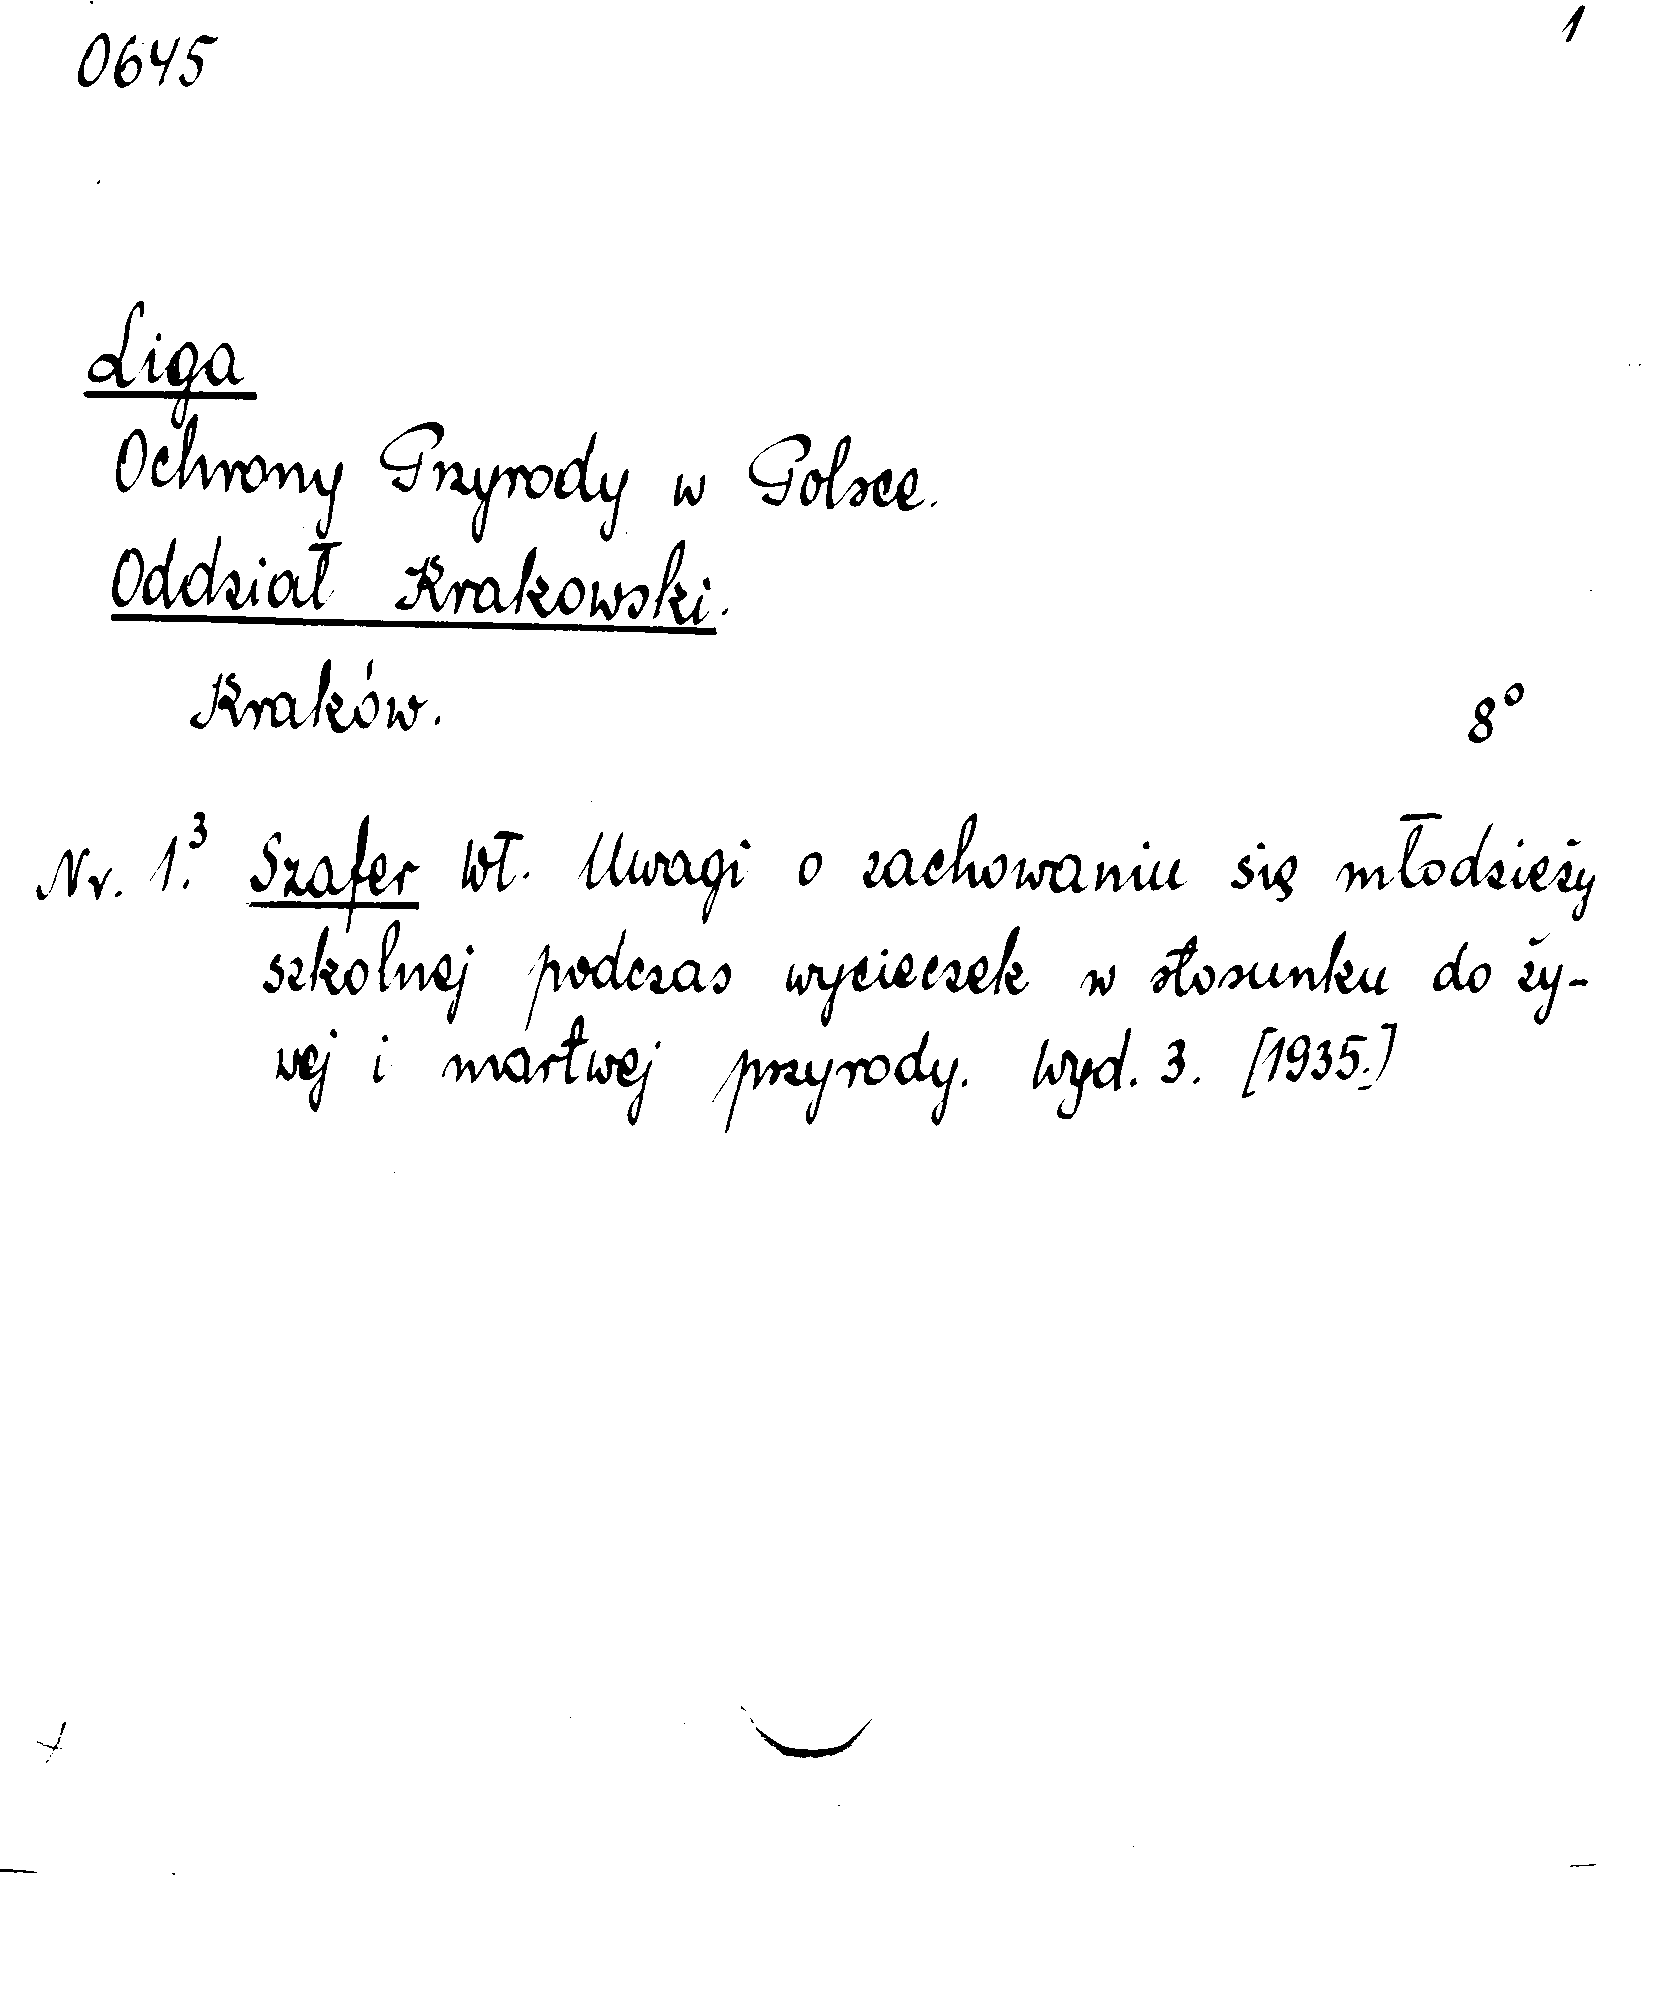 0645
1
Liga
Ochrony Przyrody w Polsce.
Oddział Krakowski.
Kraków.
8°
Nr. 1.³ Szafer Wł. Uwagi o zachowaniu się młodzieży
szkolnej podczas wycieczek w stosunku do ży-
wej i martwej przyrody. Wyd. 3. [1935.]